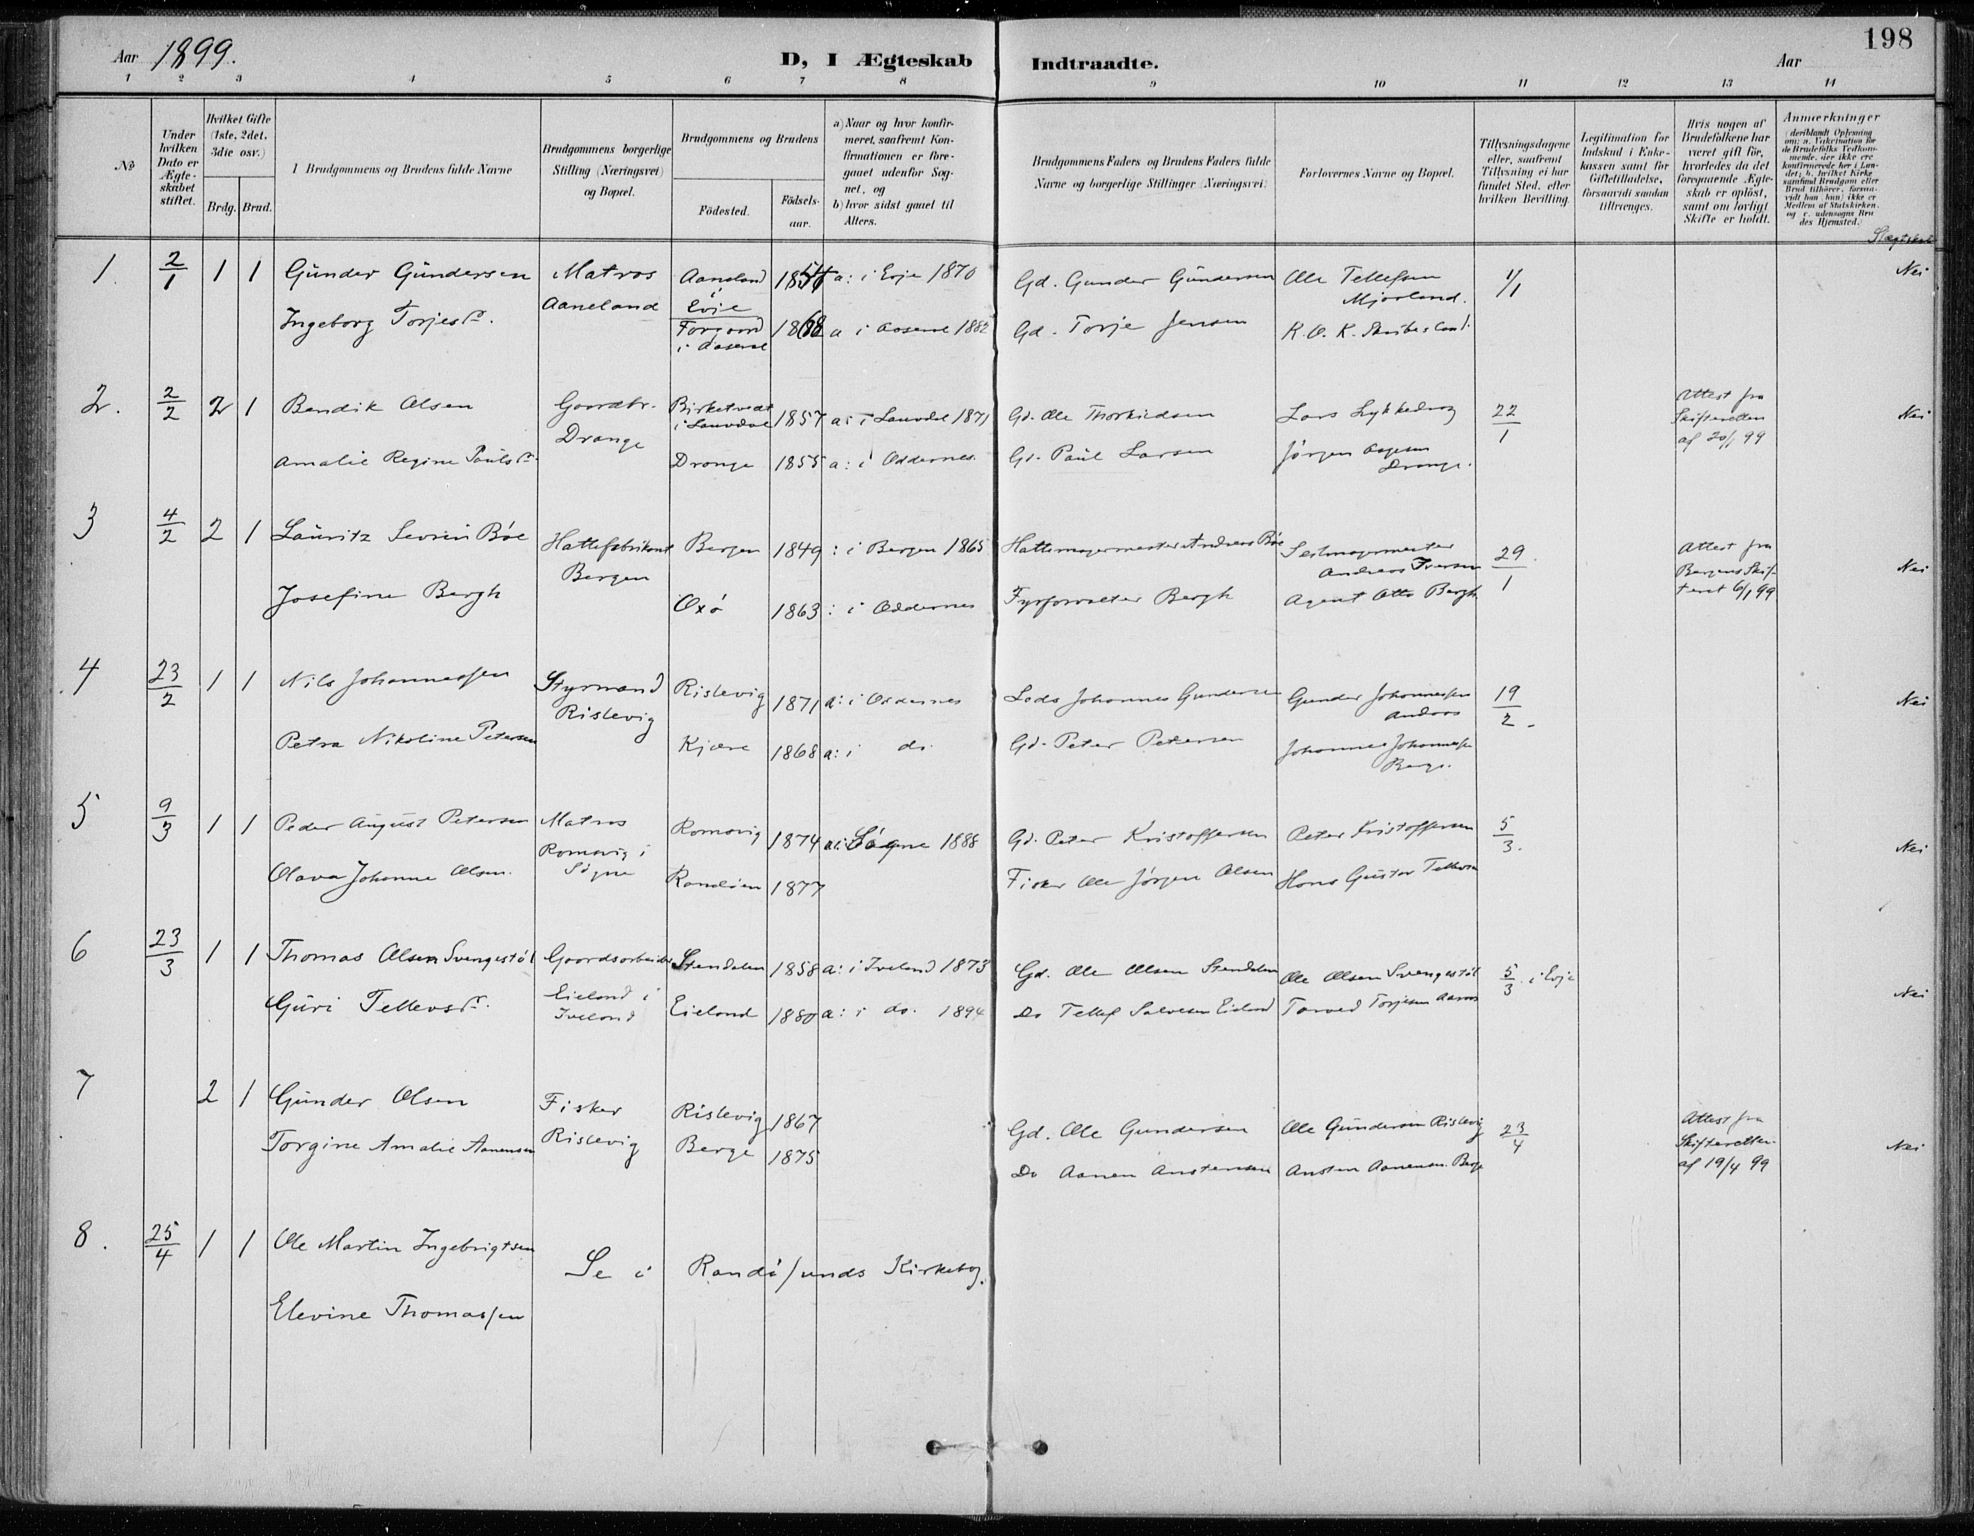 198
Aar 1899.
D, I Ægteskab Indtraadte.
Aar
1 2 3 4 5 6 7 8 9 10 11 12 13 14
No
Under hvilken Dato er Ægteskabet stiftet.
Hvilket Gifte (1ste, 2det, 3die osv.)
Brdg. Brud.
Brudgommens og Brudens fulde Navne
Brudgommens borgerlige Stilling (Næringsvei) og Bopæl.
Brudgommens og Brudens
Födested.
Födsels-aar.
a) Naar og hvor konfirmeret, saafremt Konfirmationen er foregaaet udenfor Sognet, og
b) hvor sidst gaaet til Alters.
Brudgommens Faders og Brudens Faders fulde Navne og borgerlige Stillinger (Næringsvei)
Forlovernes Navne og Bopæl.
Tillysningsdagene eller, saafremt Tillysning ei har fundet Sted, efter hvilken Bevilling.
Legitimation for Indskud i Enkekassen samt for Giftetilladelse, forsaavidt saadan tiltrænges.
Hvis nogen af Brudefolkene har været gift för, hvorledes da det foregaaende Ægteskab er oplöst, samt om lovligt Skifte er holdt.
Anmærkninger
Slægtskab
1. 2/1 1 1 Gunder Gundersen Matros Aaneland i Evje a: i Evje 1870 Gd. Gunder Gundersen Ole Tellefsen Mjaaland. 1/1 Nei
Ingeborg Torjesd. Aaneland i Aaseral 1868 a i Aaseral 1882 Gd. Torje Jensen
2. 2/2 2 1 Bendik Olsen Gaardbr. Drange Birketvedt i Laudal 1857 a: i Laudal 1871 Gd. Ole Lars 22/1 Attest fra Skifteretten af 20/1 99 Nei
Amalie Regine Paulsd. Drange 1855 a: i Oddernes Gd. Paul Larsen Jørgen Drange.
3 4/2 2 1 Lauritz Severin Bøe Hattefabrikant Bergen Bergen 1849 : i Bergen 1865 Hattemagermester Andreas Bøe Andreas Iversen 29/1 Attest fra Bergens Skifteret 6/1 99 Nei
Josefine Bergh Oxø 1863 : i Oddernes Fyrforvalter Bergh Agent Otto Bergh
4 23/2 1 1 Nils Johannessen Styrmand Rislevig Rislevig 1871 a: i Oddernes Lods Johannes Gundersen Gunder Johannessen Andaas 19/2 Nei
Petra Nikoline Petersen Kjære 1868 a: i do. Gd. Peter Petersen Johannes Johannessen Berge.
5 9/3 1 1 Peder August Petersen Matros Romsvig i Søgne Romsvig 1874 a: i Søgne 1888 Gd. Peter Kristoffersen Peter Kristoffersen 5/3. Nei
Olava Johanne Olsen. Randöen 1877 Fisker Ole Jørgen Olsen Hans Gustav
6 23/3 1 1 Thomas Olsen Svengestöl Gaardsarbeider Eieland i Iveland Stendalen 1858 a: i Iveland 1873 Gd. Ole Olsen Stendalen Ole Olsen Svengestöl 5/3 i Evje Nei
Guri Tellevsd. Eieland 1880 a: i do. 1894 Do Tellef Salvesen Eieland Torjesen
7 2 1 Gunder Olsen Fisker Rislevig Rislevig 1867 Gd. Ole Gundersen Ole Gundersen Rislevig 23/4 Attest fra Skifteretten af 19/4 99 Nei
Torgine Amalie Aanensen Berge 1875 Do Aanen Anstensen Ansten Aanensen. Berge
8. 25/4 1 1 Ole Martin Ingebrigtsen Se i Randøsunds Kirkebog.
Elevine Thomassen